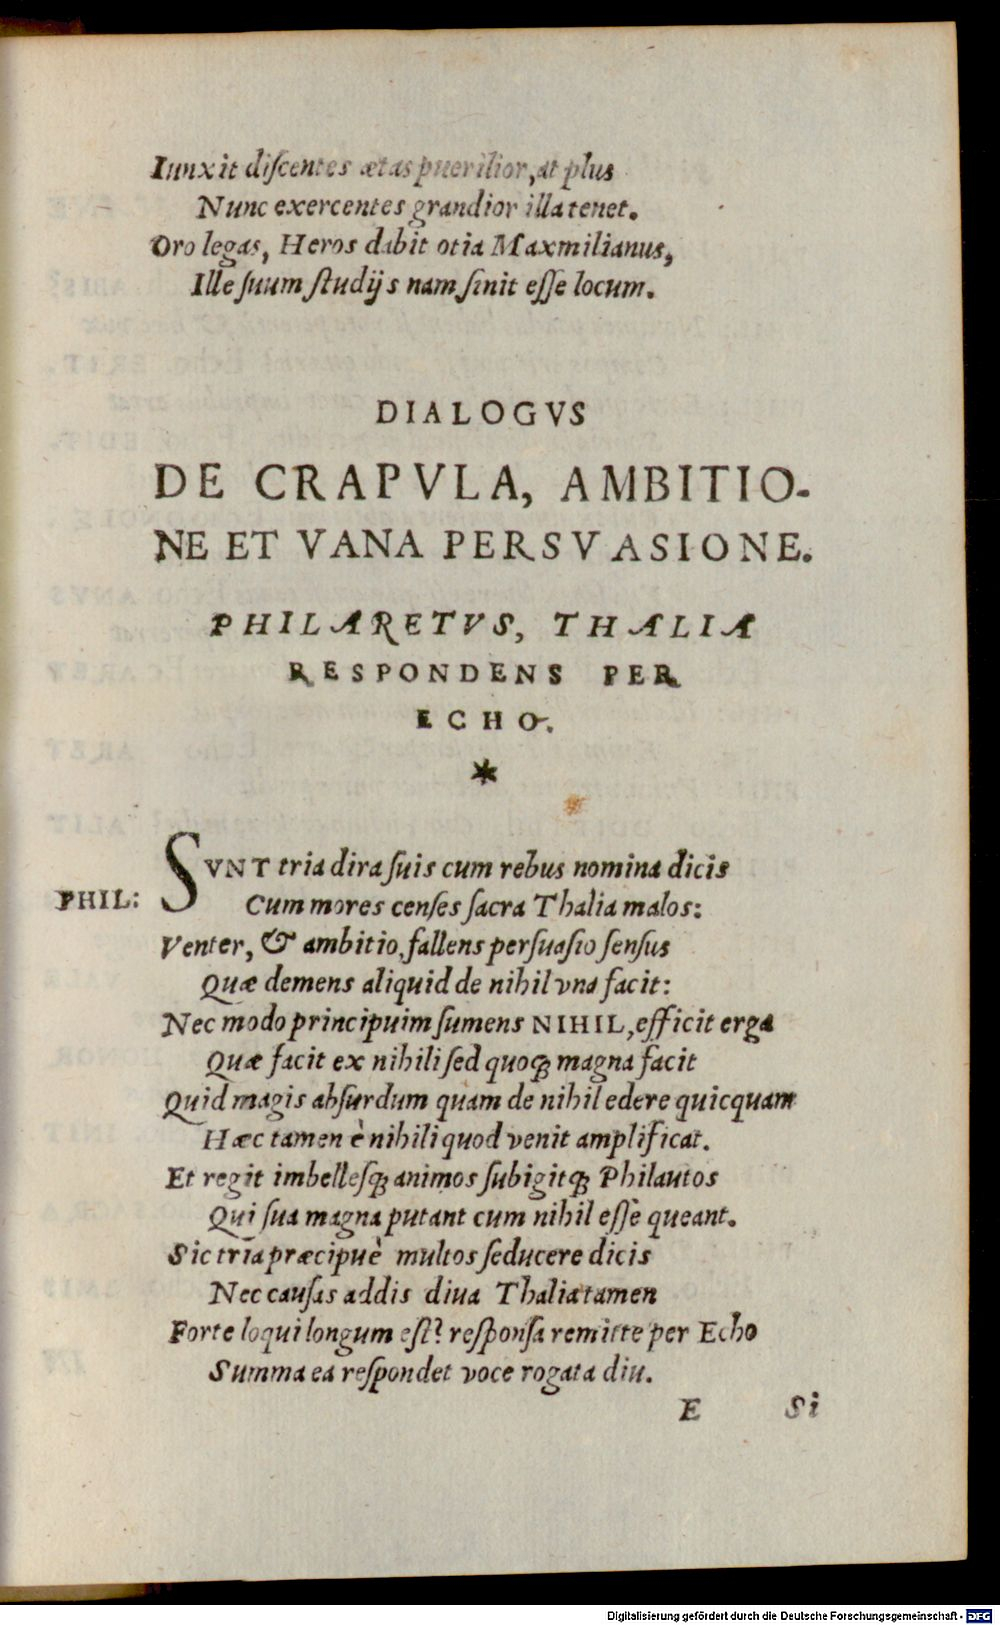 Iunxit diſcentes ætas puerilior, at plus
Nunc exercentes grandior illa tenet.
Oro legas, Heros dabit otia Maxmilianus,
Ille ſuum ſtudijs nam ſinit eſſe locum.
DIALOGVS
DE CRAPVLA, AMBITIO-
NE ET VANA PERSVASIONE.
PHILARETVS, THALIA
RESPONDENS PER
ECHO.
*
PHIL: SVNT tria dira ſuis cum rebus nomina dicis
Cum mores cenſes ſacra Thalia malos:
Venter, & ambitio, fallens perſuaſio ſenſus
Quæ demens aliquid de nihil vna facit:
Nec modo principuim ſumens NIHIL, efficit erga
Quæ facit ex nihili ſed quoqꝫ magna facit
Quid magis abſurdum quam de nihil edere quicquam
Hæc tamen è nihili quod venit amplificat.
Et regit imbelleſqꝫ animos ſubigitqꝫ Philautos
Qui ſua magna putant cum nihil eſſè queant.
Sic tria præcipuè multos ſeducere dicis
Nec cauſas addis diua Thalia tamen
Forte loqui longum eſt? reſponſa remitte per Echo
Summa ea reſpondet voce rogata diu.
E Si
Digitalisierung gefördert durch die Deutsche Forschungsgemeinschaft - DFG